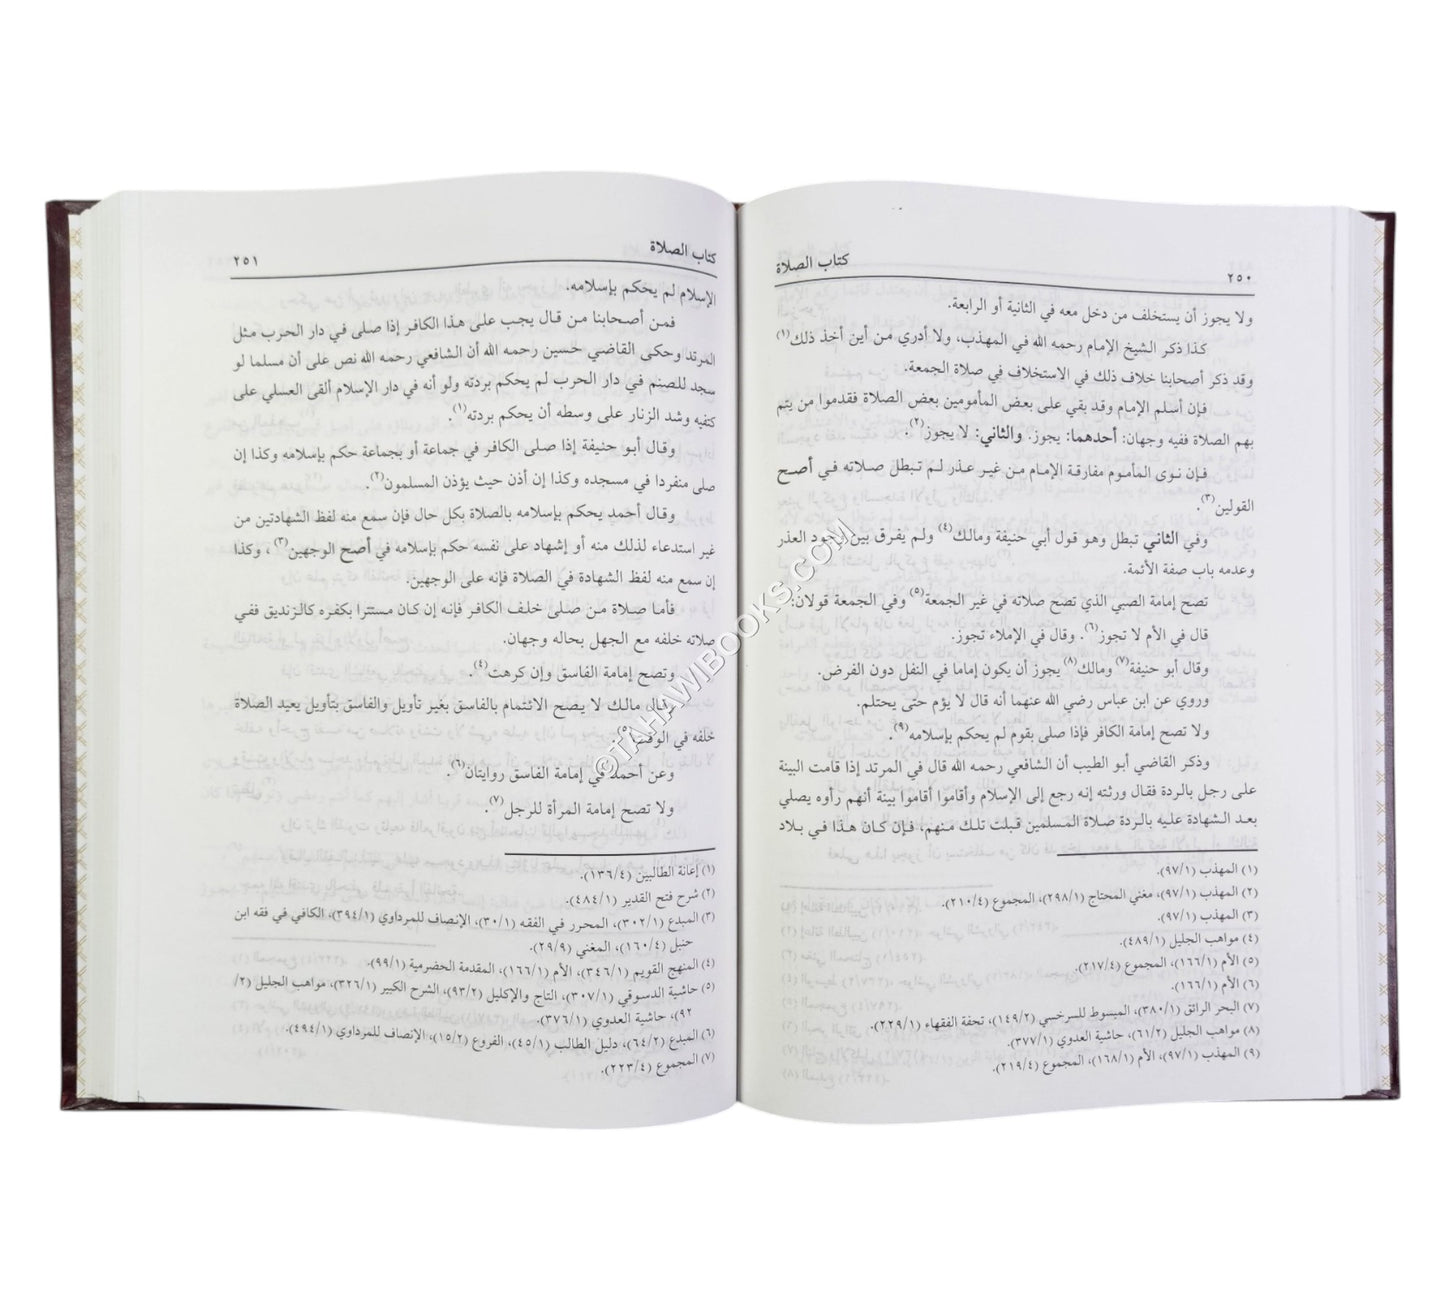 ٢٥٠
كتاب الصلاة
ولا يجوز أن يستخلف من دخل معه في الثانية أو الرابعة.
كذا ذكر الشيخ الإمام رحمه الله في المهذب، ولا أدري من أين أخذ ذلك(١)
وقد ذكر أصحابنا خلاف ذلك في الاستخلاف في صلاة الجمعة.
فإن أسلم الإمام وقد بقي على بعض المأمومين بعض الصلاة فقدموا من يتم
بهم الصلاة ففيه وجهان: أحدهما: يجوز. والثاني: لا يجوز(٢).
فإن نوى المأموم مفارقة الإمام من غير عذر لم تبطل صلاته في أصح
القولين(٣).
وفي الثاني تبطل وهو قول أبي حنيفة ومالك(٤) ولم يفرق بين وجود العذر
وعدمه باب صفة الأئمة.
تصح إمامة الصبي الذي تصح صلاته في غير الجمعة(٥) وفي الجمعة قولان:
قال في الأم لا تجوز(٦). وقال في الإملاء تجوز.
وقال أبو حنيفة(٧) ومالك(٨) يجوز أن يكون إماما في النفل دون الفرض.
وروي عن ابن عباس رضي الله عنهما أنه قال لا يؤم حتى يحتلم.
ولا تصح إمامة الكافر فإذا صلى بقوم لم يحكم بإسلامه(٩).
وذكر القاضي أبو الطيب أن الشافعي رحمه الله قال في المرتد إذا قامت البينة
على رجل بالردة فقال ورثته إنه رجع إلى الإسلام وأقاموا أقاموا بينة أنهم رأوه يصلي
بعد الشهادة عليه بالردة صلاة المسلمين قبلت تلك منهم، فإن كان هذا في بلاد
(١) المهذب (٩٧/١).
(٢) المهذب (٩٧/١)، مغني المحتاج (٢٩٨/١)، المجموع (٢١٠/٤).
(٣) المهذب (٩٧/١).
(٤) مواهب الجليل (٤٨٩/١).
(٥) الأم (١٦٦/١)، المجموع (٢١٧/٤).
(٦) الأم (١٦٦/١).
(٧) البحر الرائق (٣٨٠/١)، المبسوط للسرخسي (١٤٩/٢)، تحفة الفقهاء (٢٢٩/١).
(٨) مواهب الجليل (٦١/٢)، حاشية العدوي (٣٧٧/١).
(٩) المهذب (٩٧/١)، الأم (١٦٨/١)، المجموع (٢١٩/٤).
كتاب الصلاة
٢٥١
الإسلام لم يحكم بإسلامه.
فمن أصحابنا من قال يجب على هذا الكافر إذا صلى في دار الحرب مثل
المرتد وحكى القاضي حسين رحمه الله أن الشافعي رحمه الله نص على أن مسلما لو
سجد للصنم في دار الحرب لم يحكم بردته ولو أنه في دار الإسلام ألقى العسلي على
كتفيه وشد الزنار على وسطه أن يحكم بردته(١).
وقال أبو حنيفة إذا صلى الكافر في جماعة أو بجماعة حكم بإسلامه وكذا إن
صلى منفردا في مسجده وكذا إن أذن حيث يؤذن المسلمون(٢).
وقال أحمد يحكم بإسلامه بالصلاة بكل حال فإن سمع منه لفظ الشهادتين من
غير استدعاء لذلك منه أو إشهاد على نفسه حكم بإسلامه في أصح الوجهين(٣)، وكذا
إن سمع منه لفظ الشهادة في الصلاة فإنه على الوجهين.
فأما صلاة من صلى خلف الكافر فإنه إن كان مستترا بكفره كالزنديق ففي
صلاته خلفه مع الجهل بحاله وجهان.
وتصح إمامة الفاسق وإن كرهت(٤).
وقال مالك لا يصح الائتمام بالفاسق بغير تأويل والفاسق بتأويل يعيد الصلاة
خلفه في الوقت(٥).
وعن أحمد في إمامة الفاسق روايتان(٦).
ولا تصح إمامة المرأة للرجل(٧).
(١) إعانة الطالبين (١٣٦/٤).
(٢) شرح فتح القدير (٤٨٤/١).
(٣) المبدع (٣٠٢/١)، المحرر في الفقه (٣٠/١)، الإنصاف للمرداوي (٣٩٤/١)، الكافي في فقه ابن
حنبل (١٦٠/٤)، المغني (٢٩/٩).
(٤) المنهج القويم (٣٤٦/١)، الأم (١٦٦/١)، المقدمة الحضرمية (٩٩/١).
(٥) حاشية الدسوقي (٣٠٧/١)، التاج والإكليل (٩٣/٢)، الشرح الكبير (٣٢٦/١)، مواهب الجليل (٢/
٩٢)، حاشية العدوي (٣٧٦/١).
(٦) المبدع (٦٤/٢)، دليل الطالب (٤٥/١)، الفروع (١٥/٢)، الإنصاف للمرداوي (٤٩٤/١).
(٧) المجموع (٢٢٣/٤).
©TAHAWIBOOKS.COM